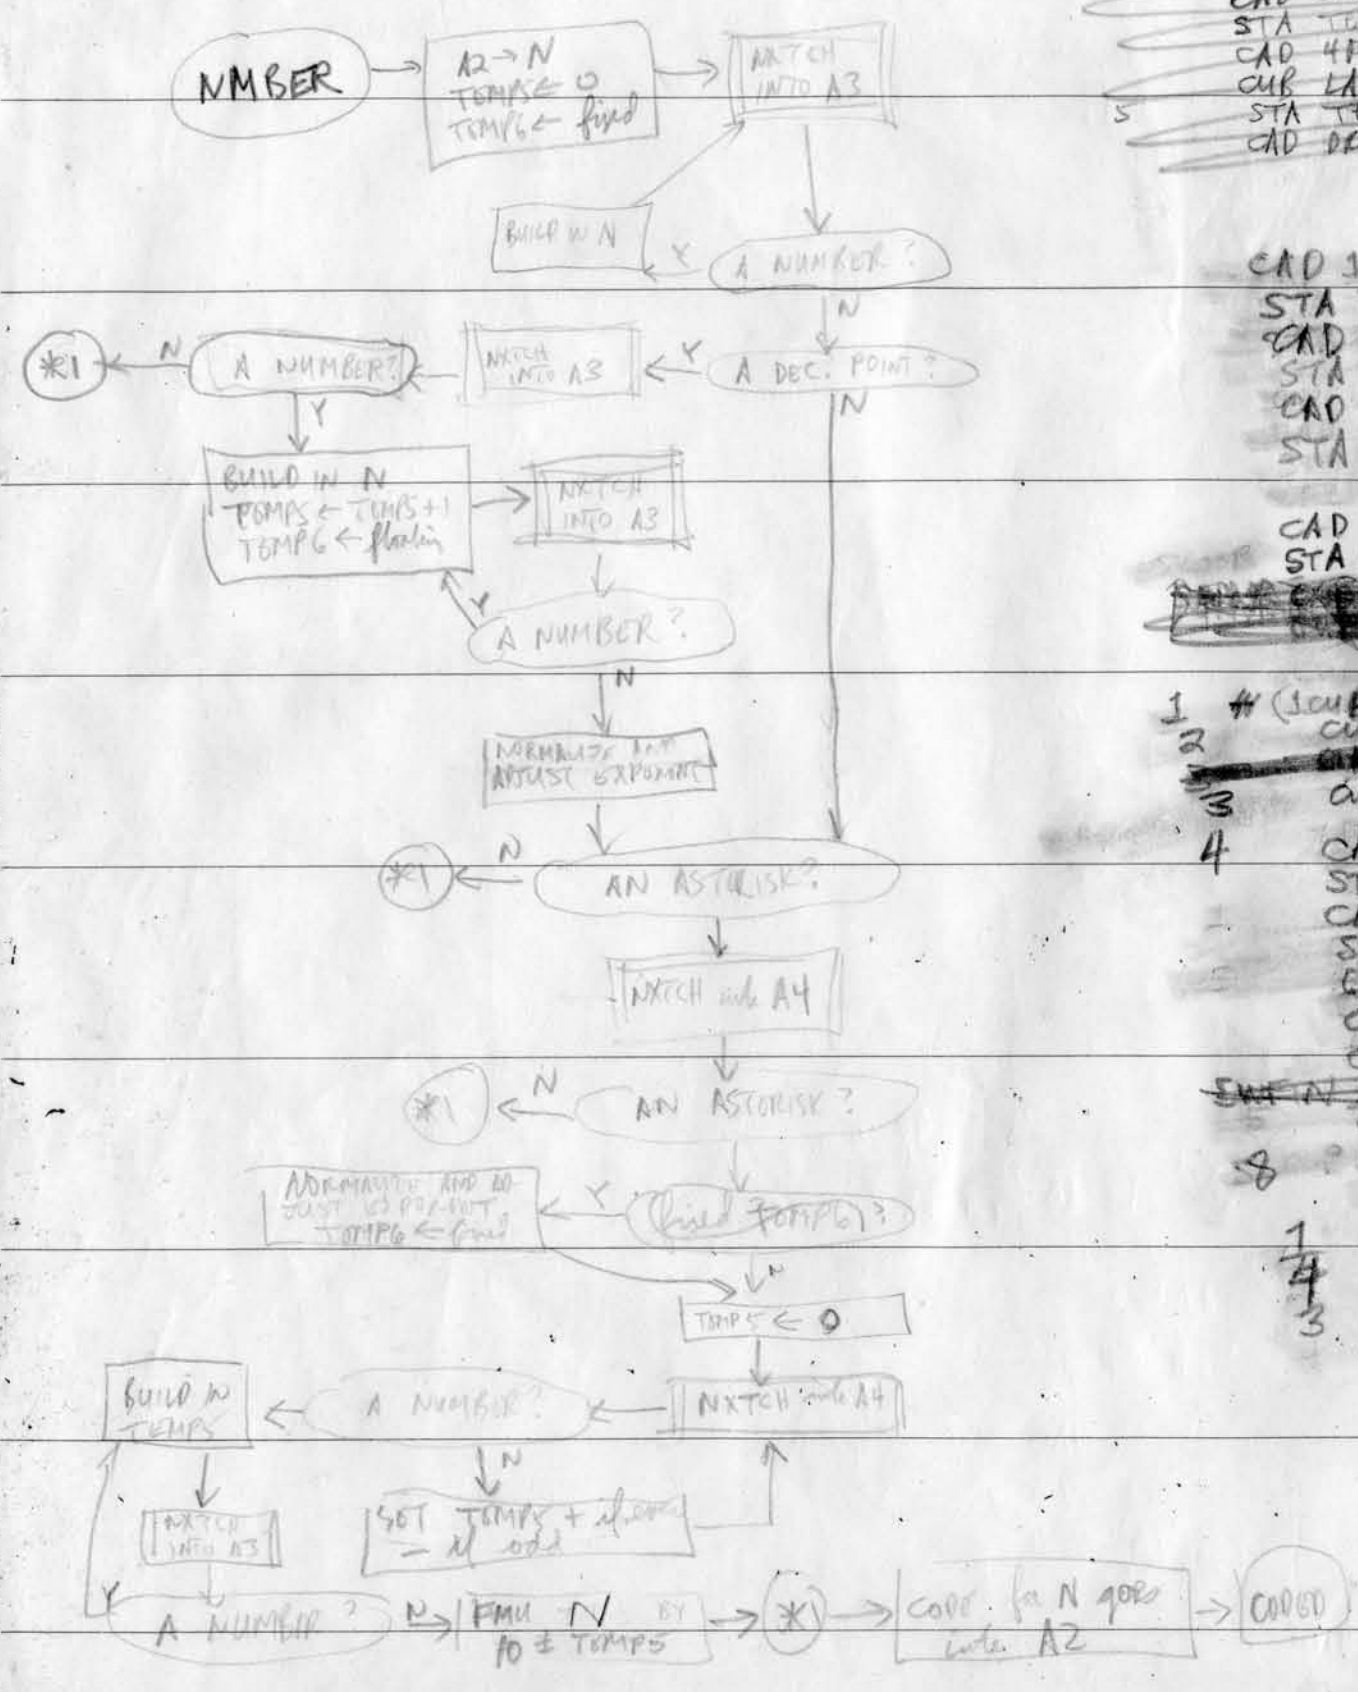 NMBER
A2 → N
TEMP5 ← 0
TEMP6 ← fixed
NXTCH
INTO A3
BUILD IN N
Y
A NUMBER?
N
*1
N
A NUMBER?
NXTCH
INTO A3
Y
A DEC. POINT?
Y
N
BUILD IN N
TEMP5 ← TEMP5+1
TEMP6 ← floating
NXTCH
INTO A3
Y
A NUMBER?
N
NORMALIZE AND
ADJUST EXPONENT
*1
N
AN ASTERISK?
NXTCH into A4
*1
N
AN ASTORISK?
NORMALIZE AND AD-
JUST EXPONENT.
TEMP6 ← fixed
Y
(fixed TEMP6)?
N
TEMP5 ← 0
BUILD IN
TEMP5
A NUMBER?
NXTCH into A4
N
NXTCH
INTO A3
SET TEMP5 + if even
- if odd
Y
A NUMBER?
N
FMU N BY
10 ± TEMP5
*1
CODE for N goes
into A2
CODED
STA
CAD
CUB
5 STA
CAD
CAD 1
STA
CAD
STA
CAD
STA
CAD
STA
1
2
3
4
8
1
4
3